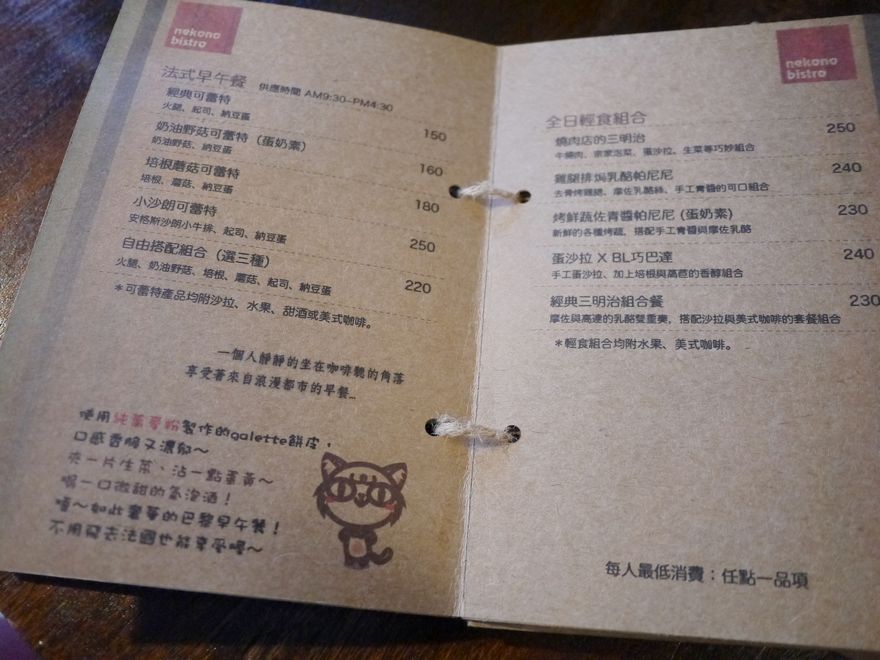 nekono
bistro
法式早午餐 供應時間 AM9:30-PM4:30
經典可蕾特
火腿、起司、納豆蛋 150
奶油野菇可蕾特（蛋奶素）
奶油野菇、納豆蛋 160
培根蘑菇可蕾特
培根、蘑菇、納豆蛋 180
小沙朗可蕾特
安格斯沙朗小牛排、起司、納豆蛋 250
自由搭配組合（選三種）
火腿、奶油野菇、培根、蘑菇、起司、納豆蛋 220
＊可蕾特產品均附沙拉、水果、甜酒或美式咖啡。
一個人靜靜的坐在咖啡聽的角落
享受著來自浪漫都市的早餐...
使用純蕎麥粉製作的galette餅皮，
口感香脆又濃郁～
夾一片生菜、沾一點蛋黃～
喝一口微甜的氣泡酒！
嘖～如此奢華的巴黎早午餐！
不用飛去法國也能享受喔～
nekono
bistro
全日輕食組合
燒肉店的三明治 250
牛燒肉、宗家泡菜、蛋沙拉、生菜等巧妙組合
雞腿排焗乳酪帕尼尼 240
去骨烤雞腿、摩佐乳酪絲、手工青醬的可口組合
烤鮮蔬佐青醬帕尼尼 (蛋奶素) 230
新鮮的各種烤蔬、搭配手工青醬與摩佐乳酪
蛋沙拉 X BL巧巴達 240
手工蛋沙拉、加上培根與萵苣的香醇組合
經典三明治組合餐 230
摩佐與高達的乳酪雙重奏，搭配沙拉與美式咖啡的套餐組合
＊輕食組合均附水果、美式咖啡。
每人最低消費：任點一品項